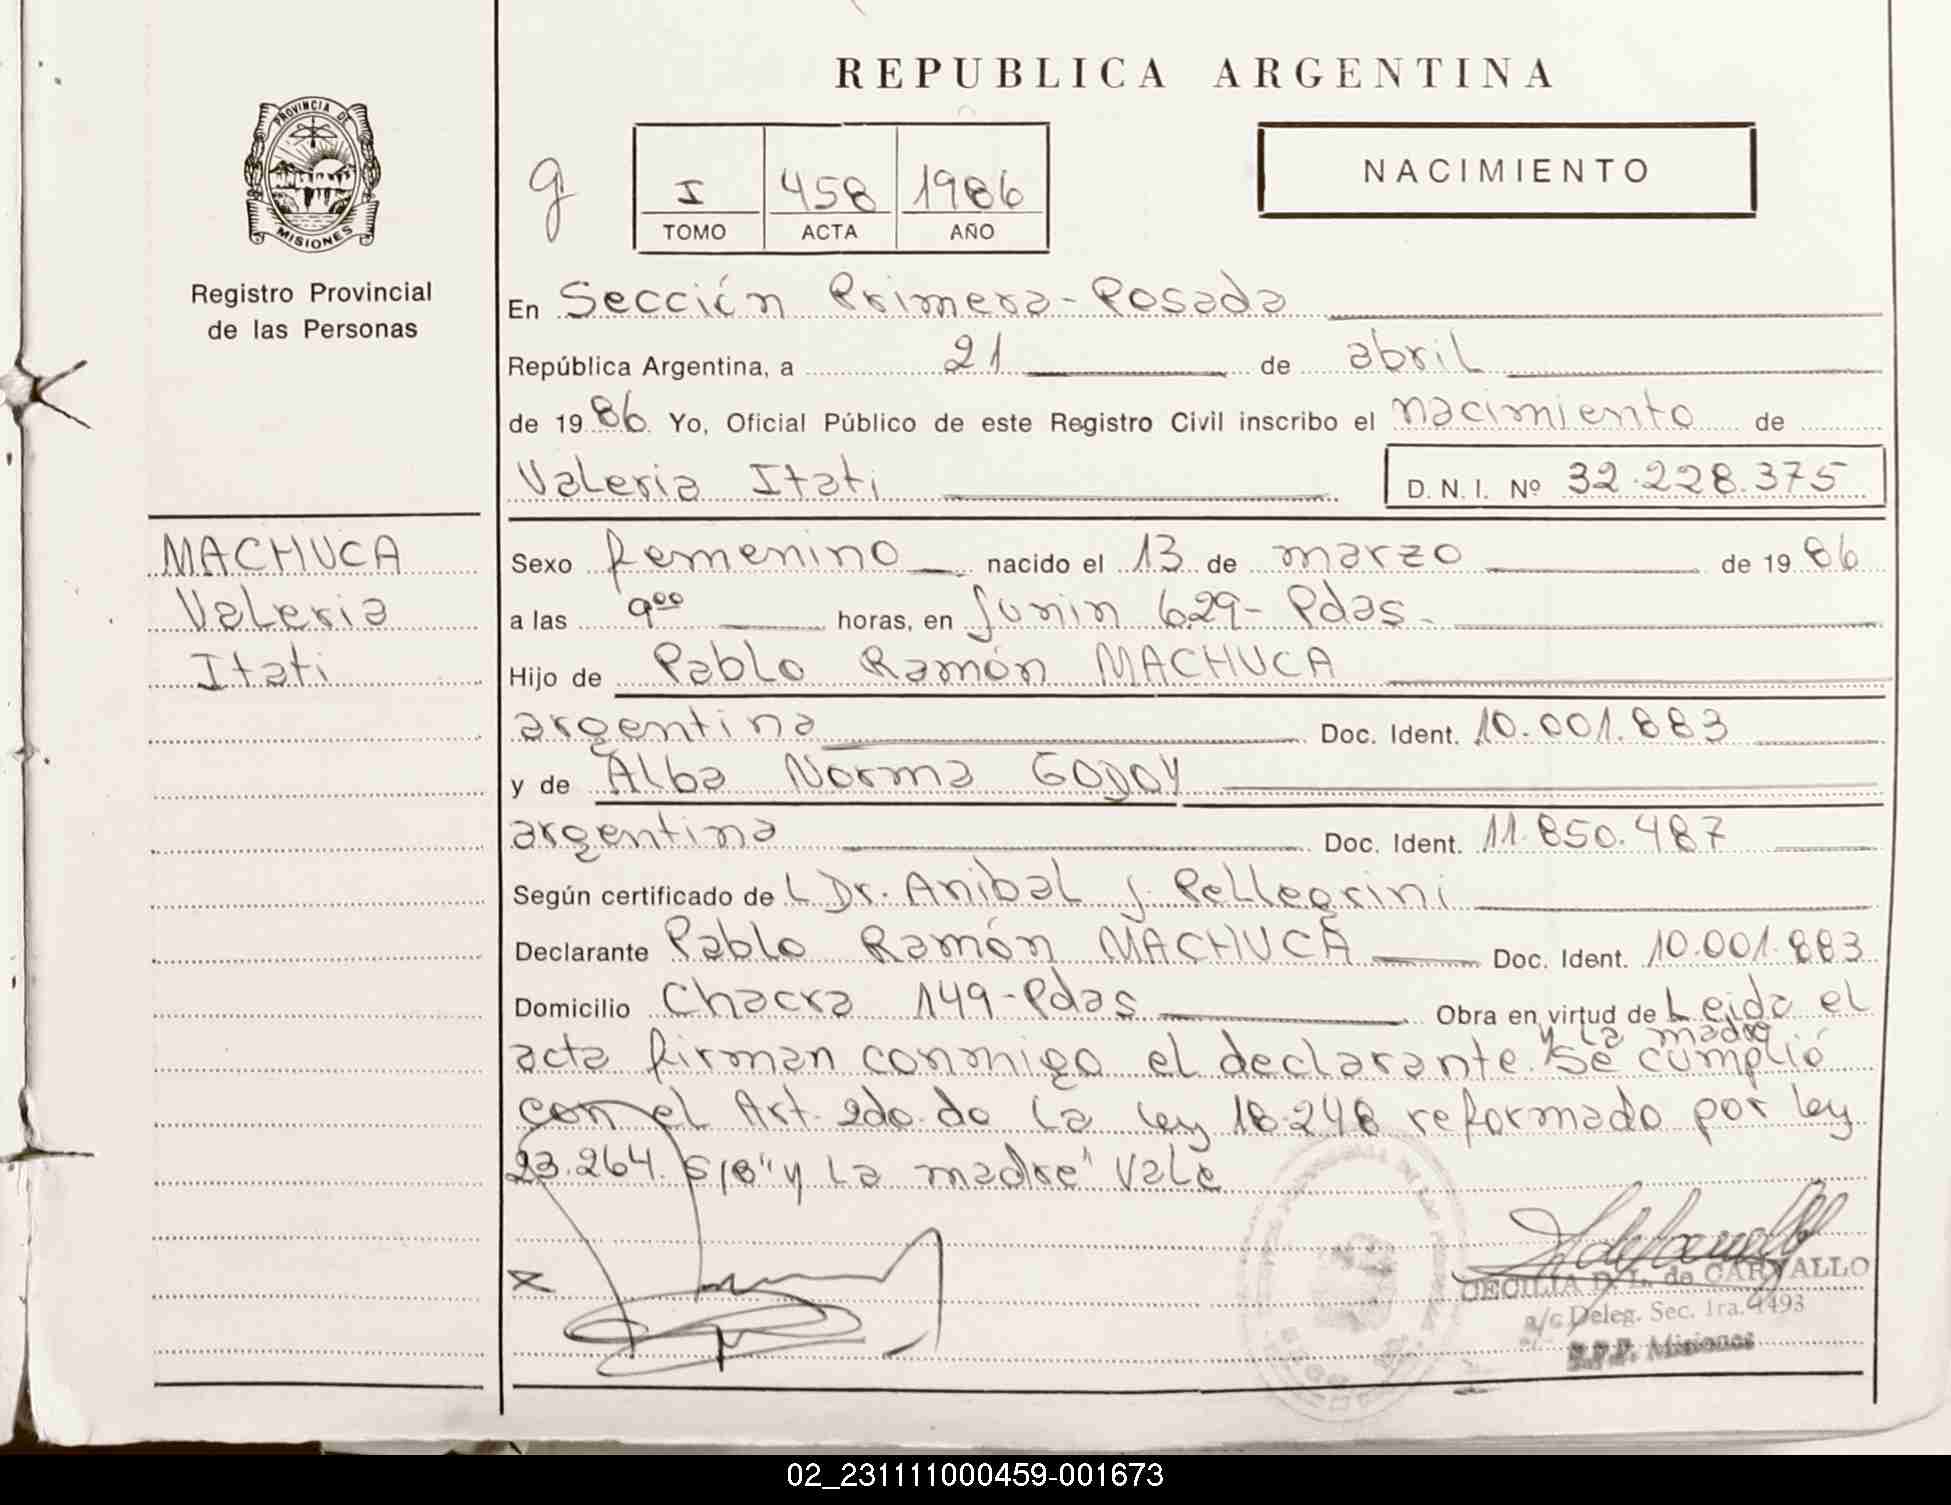 REPUBLICA ARGENTINA
PROVINCIA DE
MISIONES
Registro Provincial
de las Personas
g
I 458 1986
TOMO ACTA AÑO
NACIMIENTO
En Sección Primera-Posada
República Argentina, a 21 de abril
de 1986 Yo, Oficial Público de este Registro Civil inscribo el nacimiento de
Valeria Itati D. N. I. Nº 32.228.375
MACHUCA
Valeria
Itati
Sexo femenino nacido el 13 de marzo de 1986
a las 9⁰⁰ horas, en Junin 629- Pdas.
Hijo de Pablo Ramón MACHUCA
argentina Doc. Ident. 10.001.883
y de Alba Norma GODOY
argentina Doc. Ident. 11.850.487
Según certificado de L Dr. Anibal J. Pellegrini
Declarante Pablo Ramón MACHUCA Doc. Ident. 10.001.883
Domicilio Chacra 149-Pdas Obra en virtud de Leida el
y la madre
acta firman conmigo el declarante. Se cumplió
con el Art. 2do. de la ley 18.248 reformado por ley
23.264. S/B "y la madre" Vale
CECILIA D. L. de CARVALLO
a/c Deleg. Sec. 1ra. 4493
R.P.P. Misiones
02_231111000459-001673